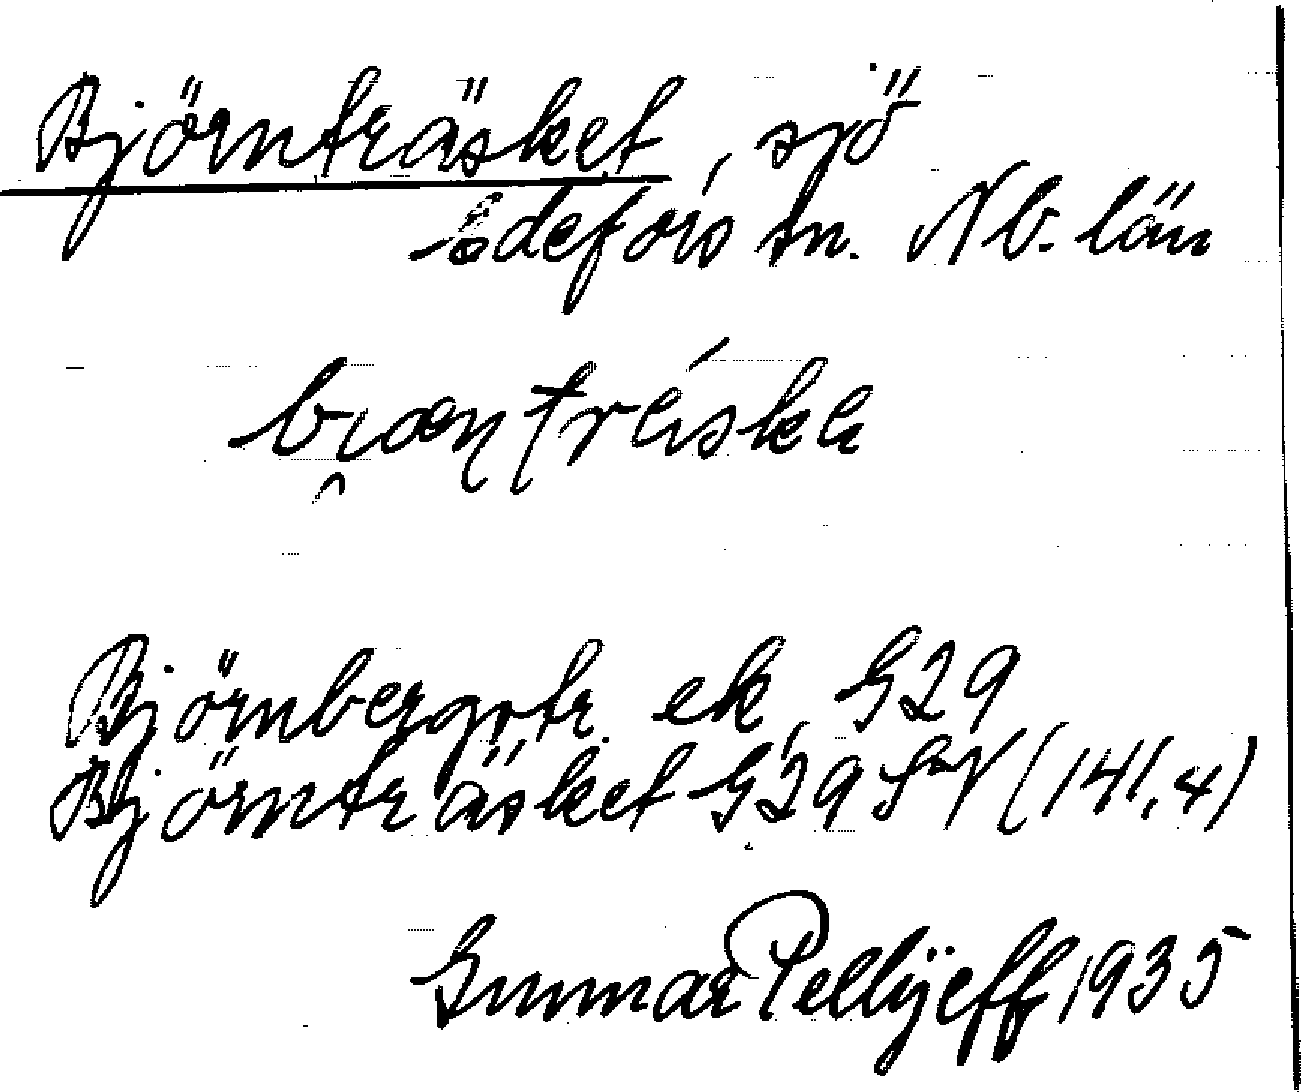 Björnträsket, sjö
Edefors sn. Nb. län
Björnbergstr. ek, G29
Björnträsket G29 SV (141,4)
Gunnar Pellijeff 1935